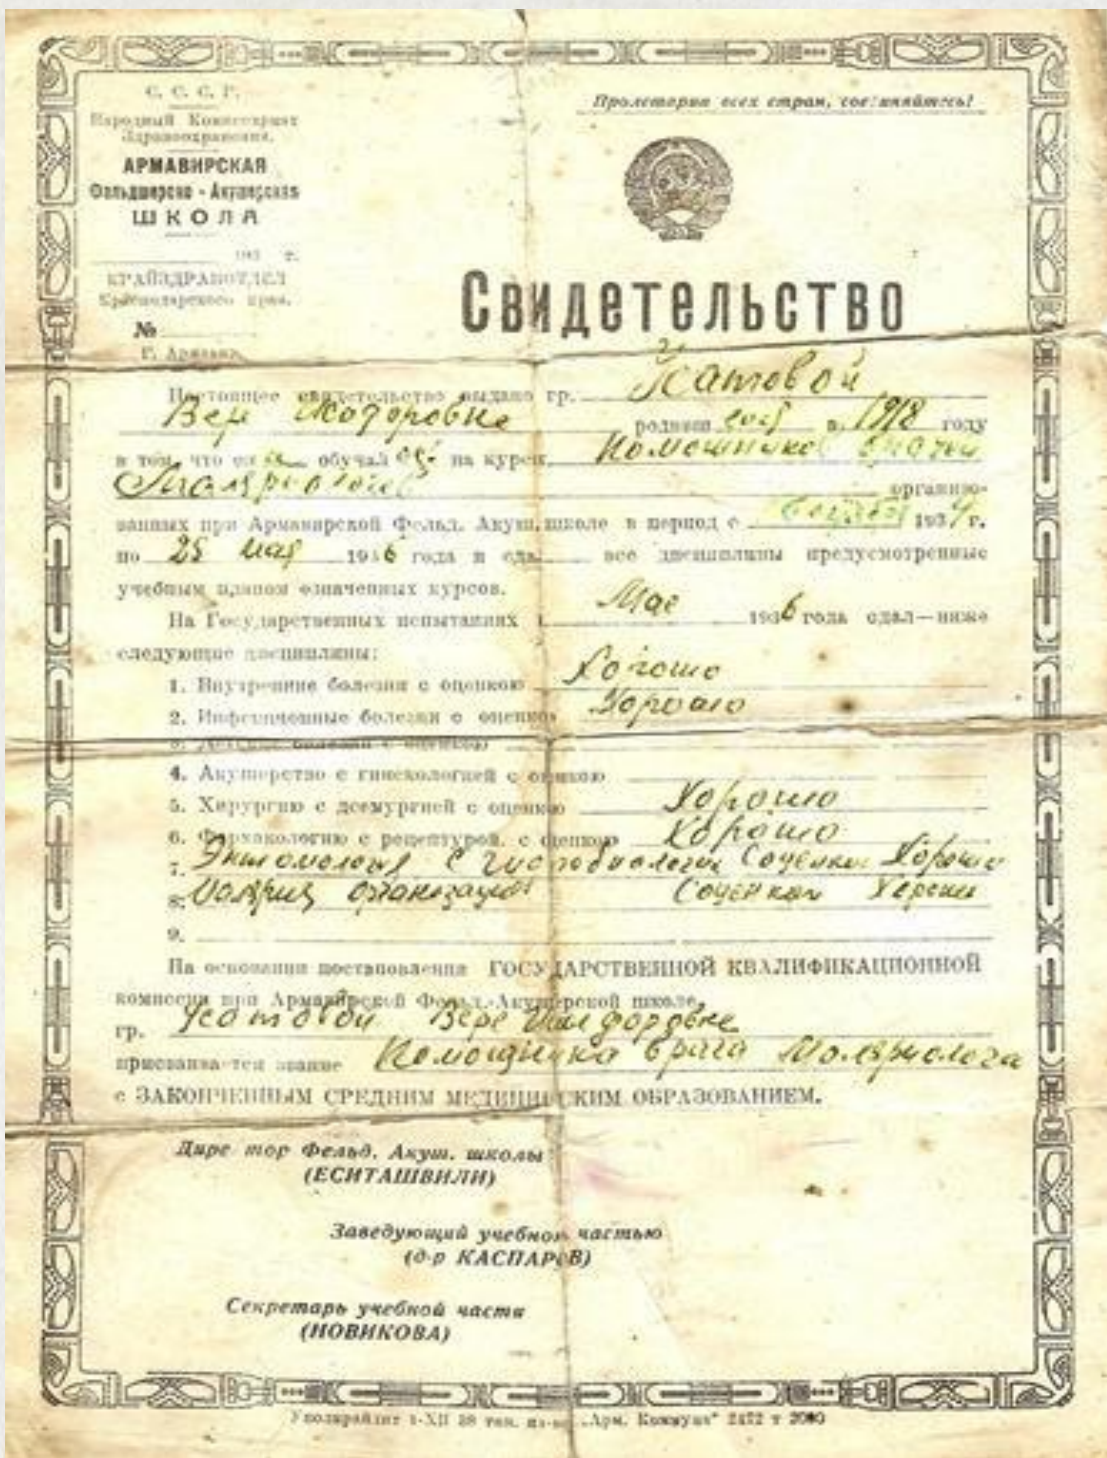 С. С. С. Р.
Народный Комиссариат
Здравоохранения.
АРМАВИРСКАЯ
Фельдшерско - Акушерская
ШКОЛА
193 г.
КРАЙЗДРАВОТДЕЛ
Краснодарского края.
№
Г. Армавир.
Пролетарии всех стран, соединяйтесь!
Свидетельство
Настоящее свидетельство выдано гр.
Вере родивш ейся в 1918 году
в том, что он а обучал ась на курсе Помошников врачей
организо-
ванных при Армавирской Фельд. Акуш. школе в период с 1934 г.
по 25 Мая 1936 года и сда все дисциплины предусмотренные
учебным планом означенных курсов.
На Государственных испытаниях в Мае 1936 года сдал—ниже
следующие дисциплины:
1. Внутренние болезни с оценкою Хорошо
2. Инфекционные болезни с оценкою Хорошо
3. Детские болезни с оценкою
4. Акушерство с гинекологией с оценкою
5. Хирургию с десмургией с оценкою Хорошо
6. Фармакологию с рецептурой, с оценкою Хорошо
7. Энтомология с гидробиологии Соценкой Хорошо
8. Соценкой Хорошо
9.
На основании постановления ГОСУДАРСТВЕННОЙ КВАЛИФИКАЦИОННОЙ
комиссии при Армавирской Фельд.-Акушерской школе
гр. Вере
присваивается звание Помощника врача Моляриолога
с ЗАКОНЧЕННЫМ СРЕДНИМ МЕДИЦИНСКИМ ОБРАЗОВАНИЕМ.
Дире тор Фельд. Акуш. школы
(ЕСИТАШВИЛИ)
Заведующий учебной частью
(д-р КАСПАРОВ)
Секретарь учебной части
(НОВИКОВА)
Уполкрайлит 1-XII 38 тип. из-ва „Арм. Коммуна" 2472 т 2000